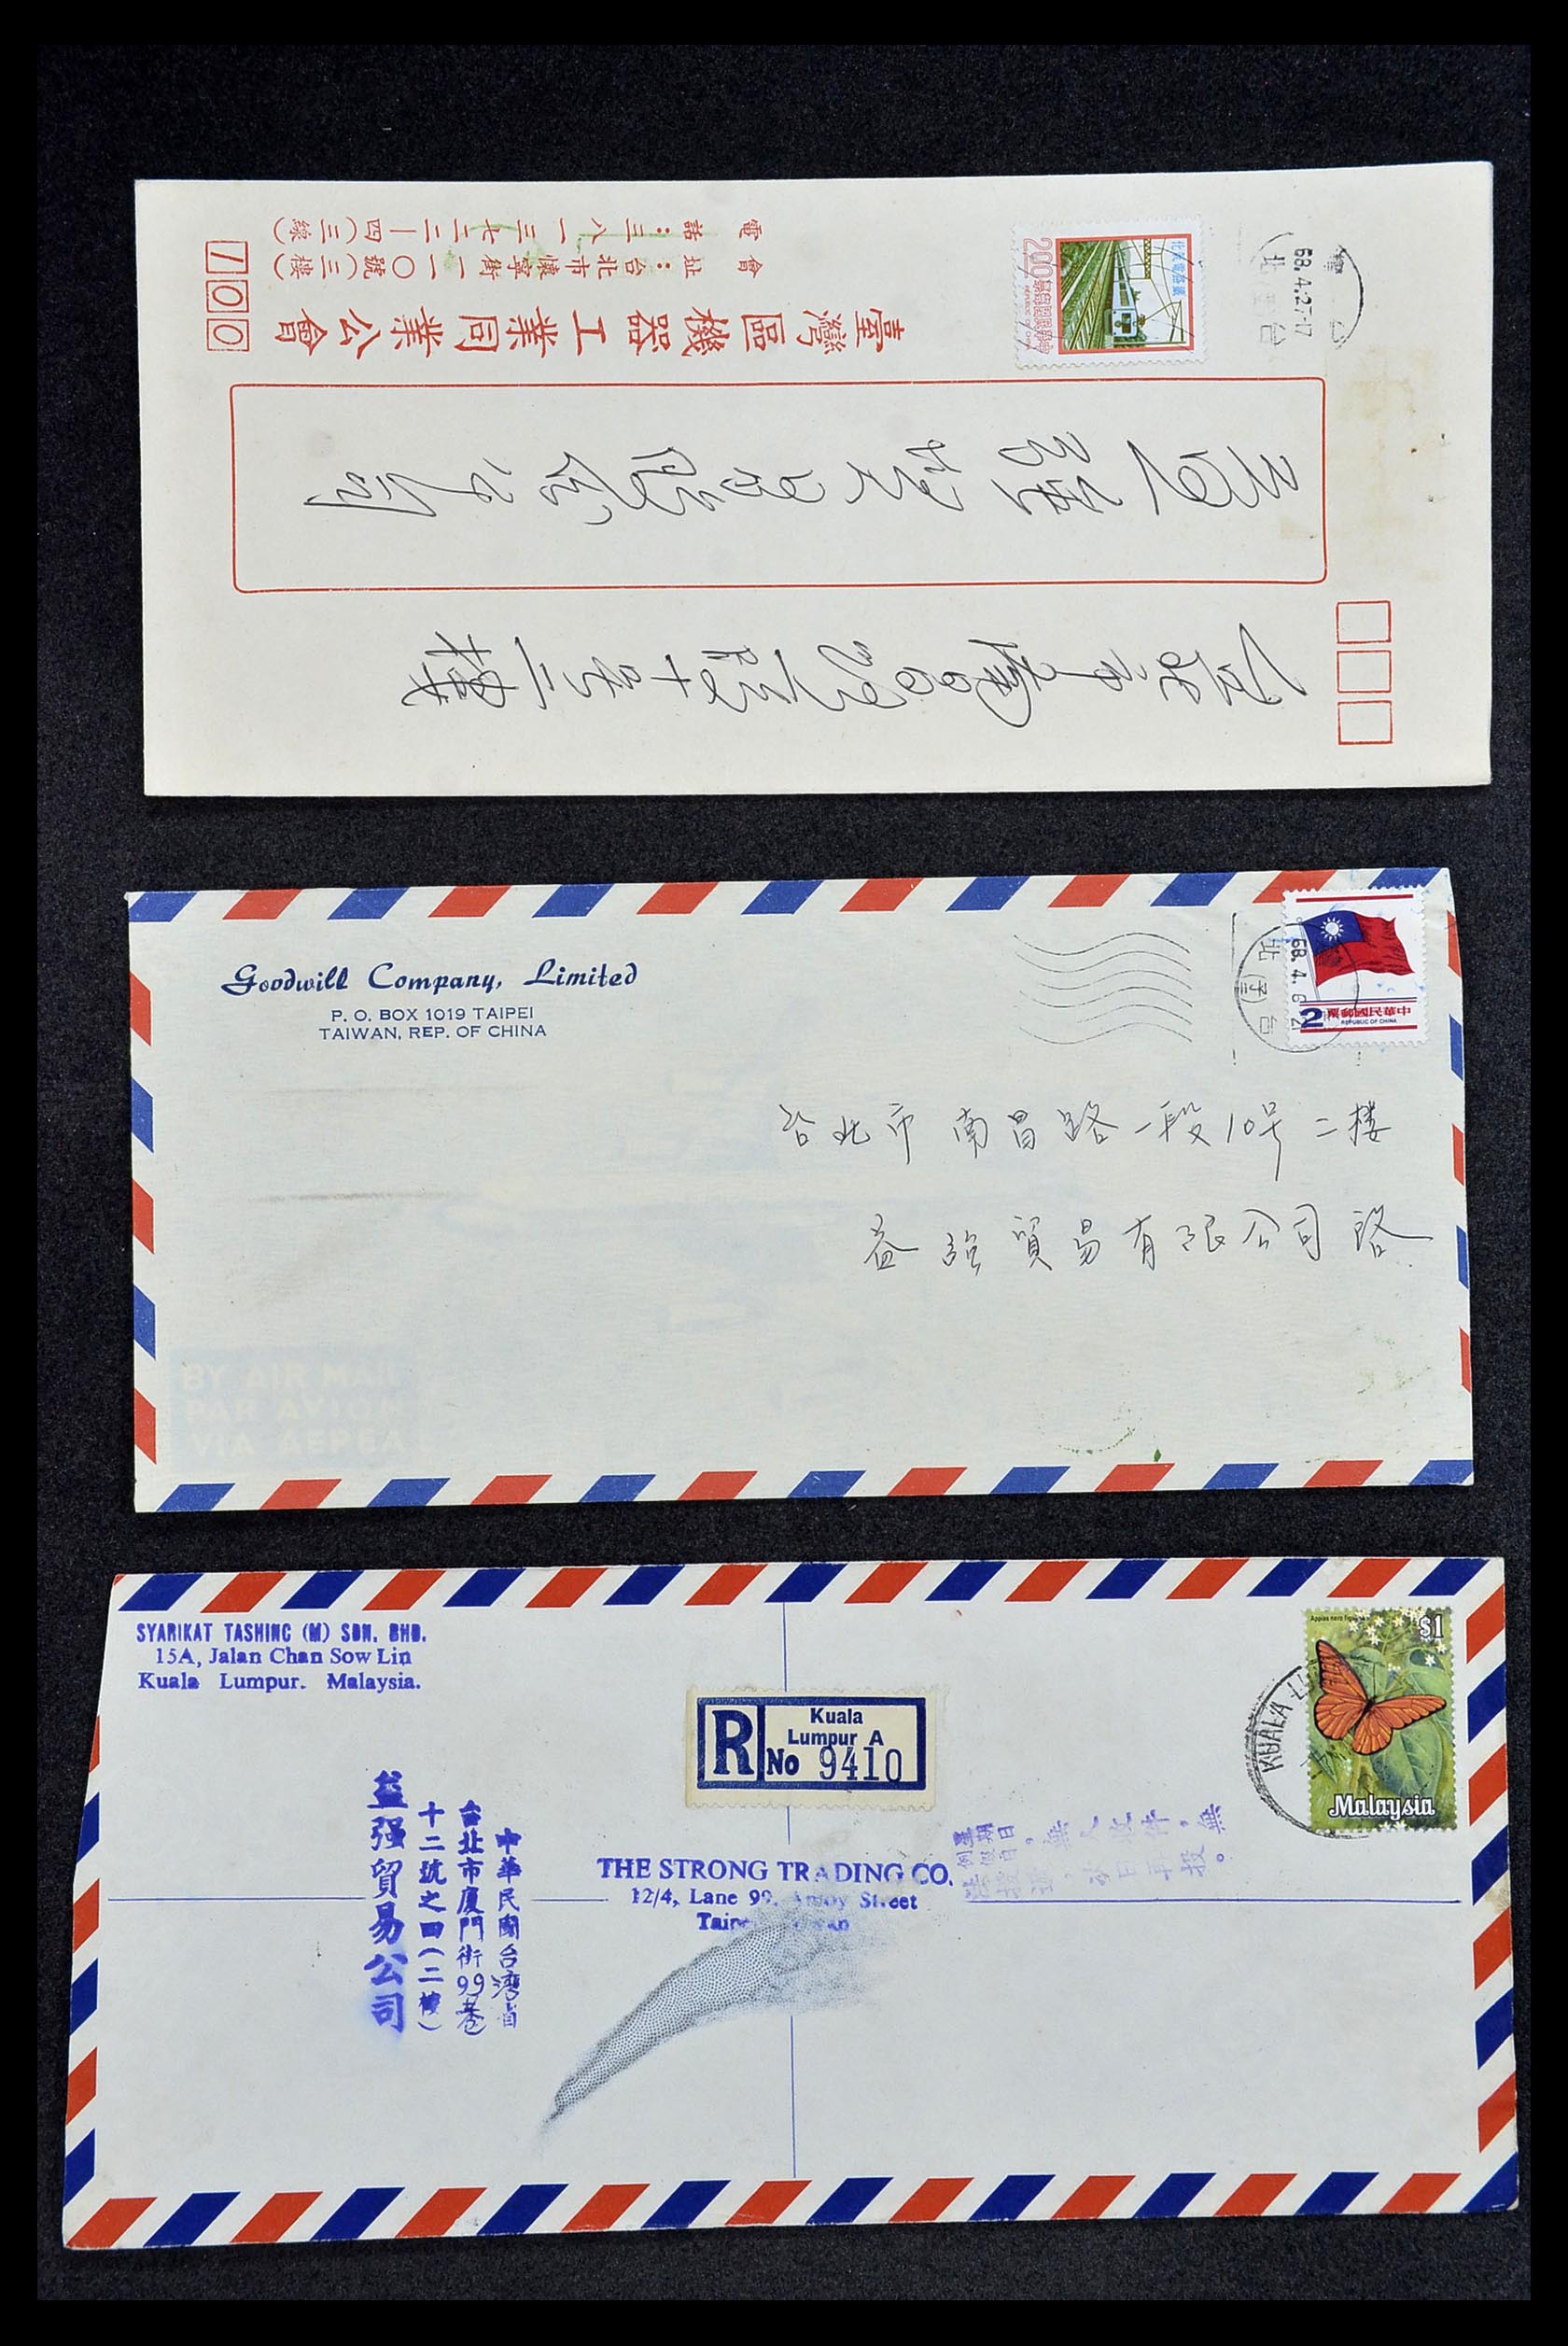 電話：三八一三七二二—四（三線）
會址：台北市懷寧街一一〇號（三樓）
臺灣區機器工業同業公會
100
200
REPUBLIC OF CHINA
68.4.27.17
Goodwill Company, Limited
P. O. BOX 1019 TAIPEI
TAIWAN, REP. OF CHINA
68.4.6
2
中華民國郵票
REPUBLIC OF CHINA
台北市南昌路一段10号二楼
益強貿易有限公司啓
BY AIR MAIL
PAR AVION
SYARIKAT TASHING (M) SDN. BHD.
15A, Jalan Chan Sow Lin
Kuala Lumpur. Malaysia.
R
Kuala
Lumpur A
No 9410
$1
Malaysia
KUALA
中華民國台湾省
台北市厦門街99巷
十二號之四(二樓)
益强貿易公司
THE STRONG TRADING CO.
12/4, Lane 99, Amoy Street
星期日
例假日，無人收件，無